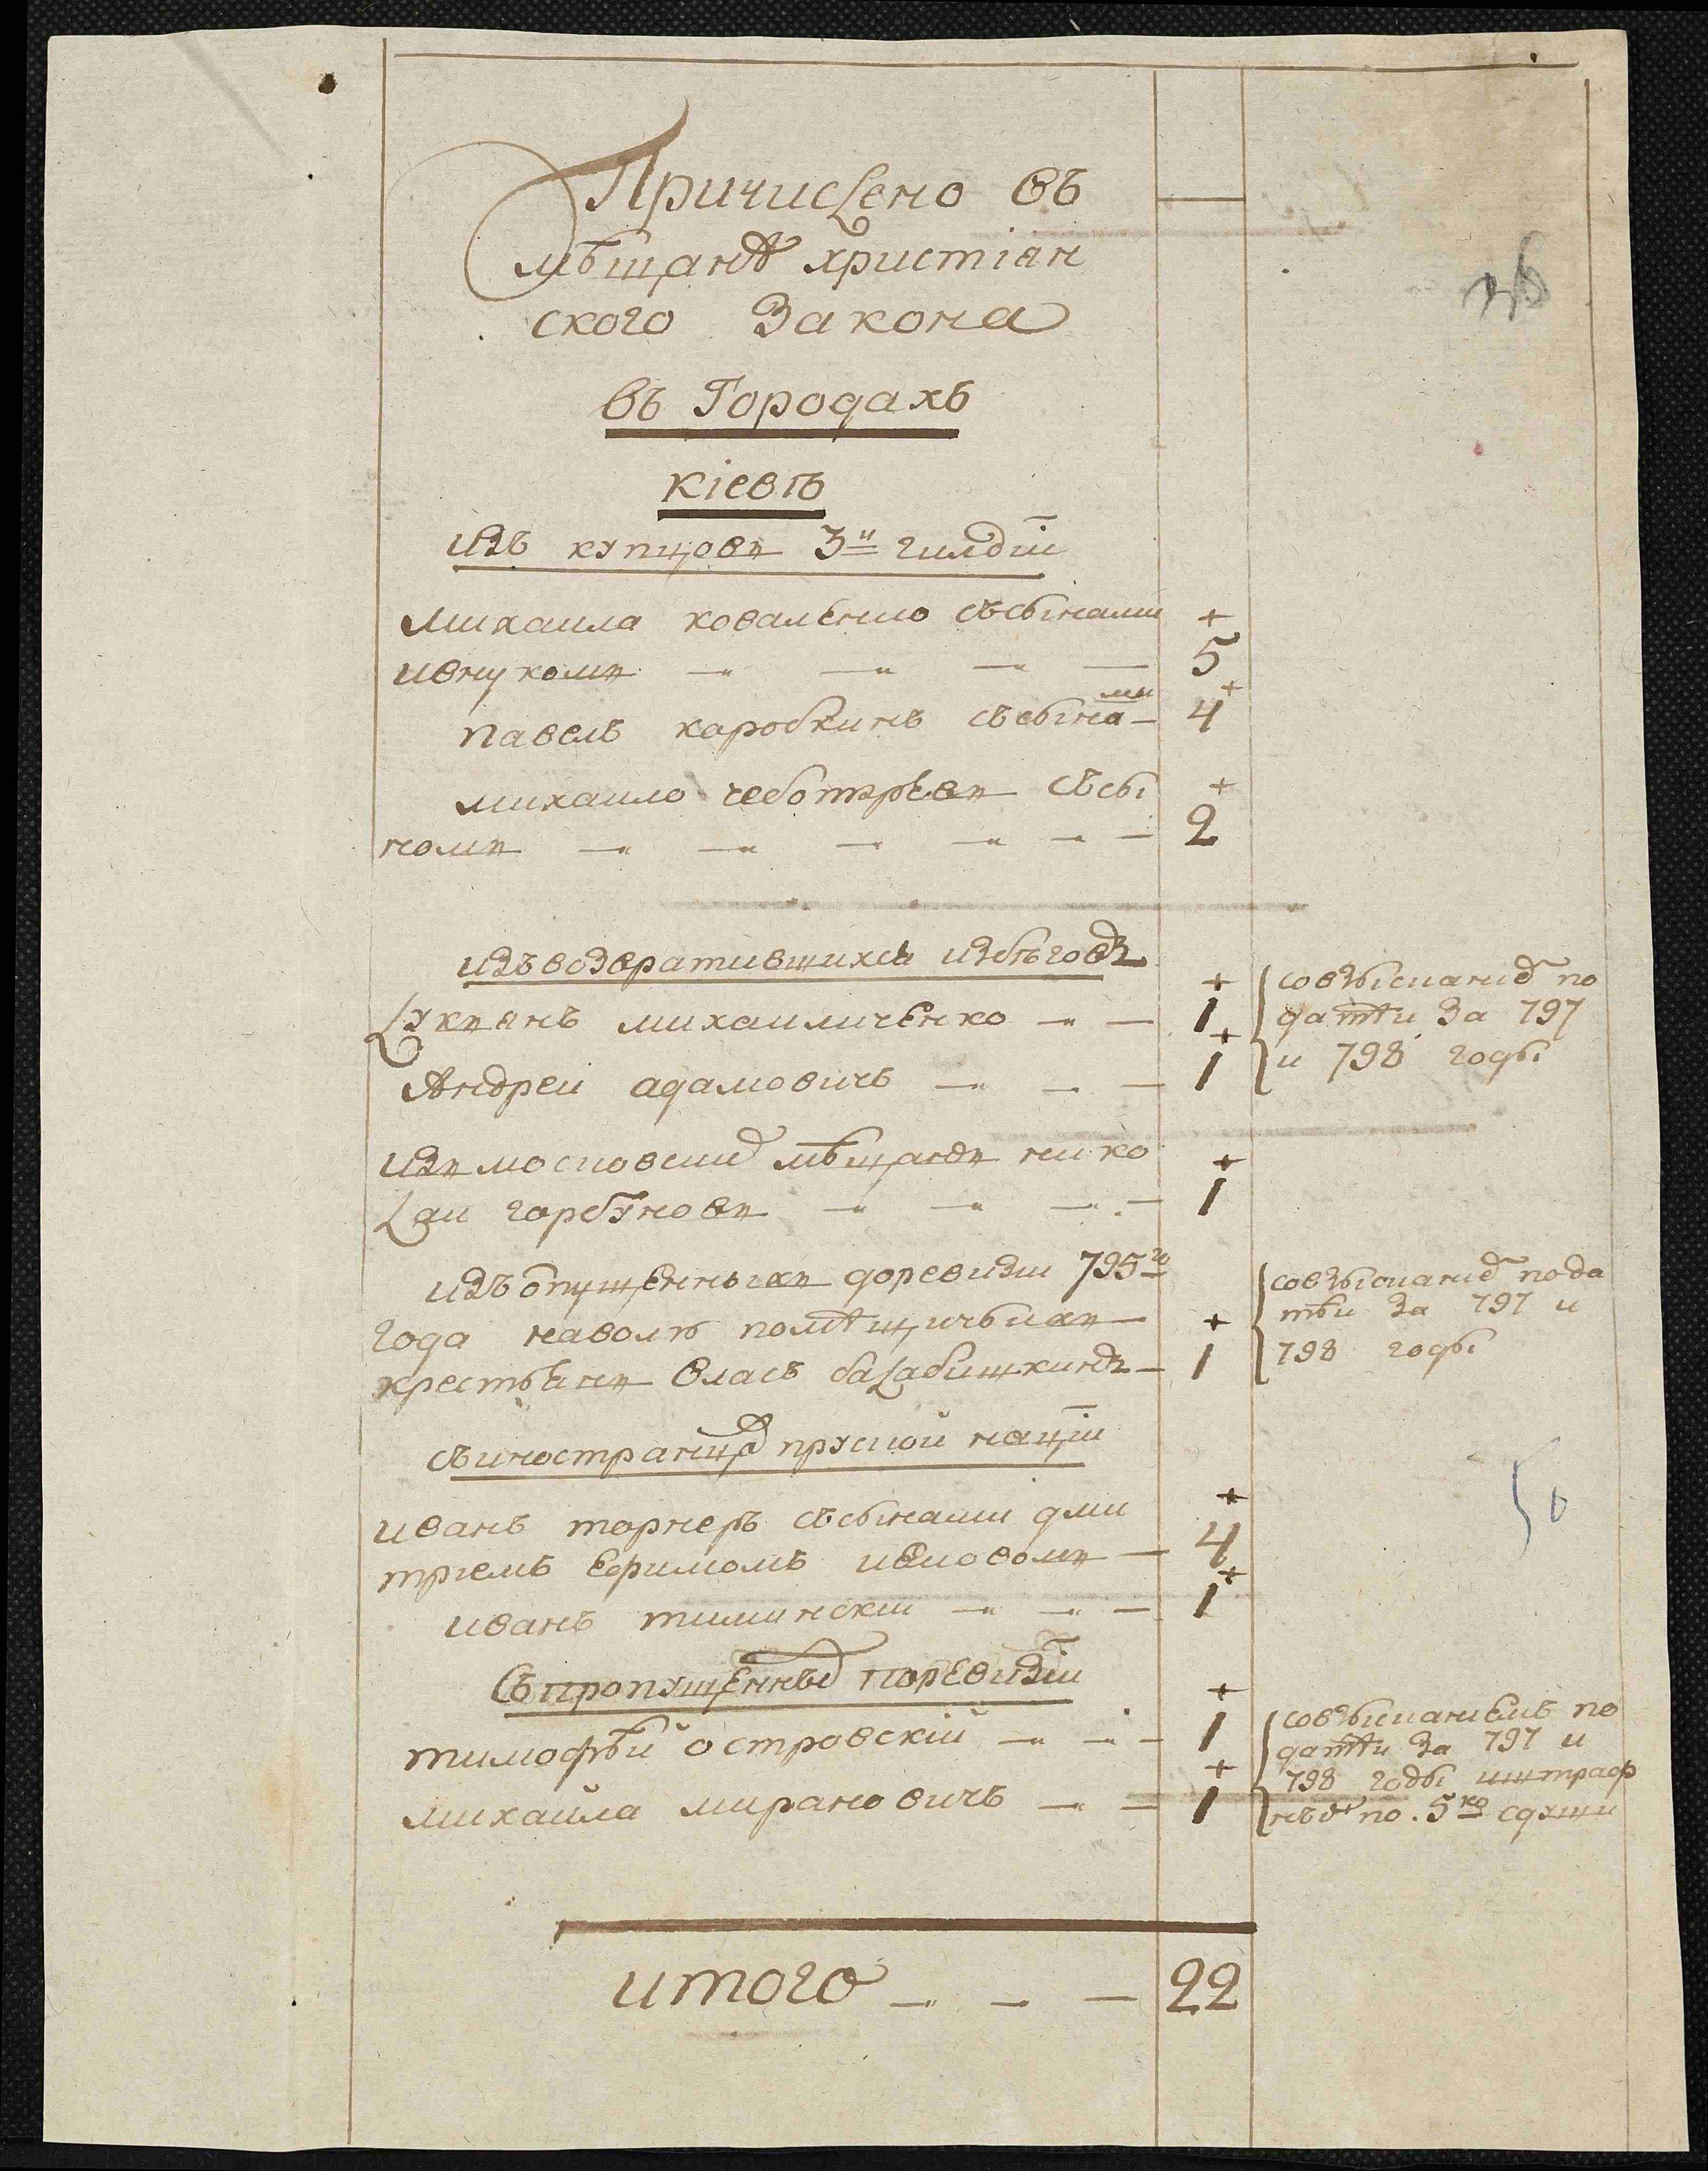 Причислено въ
мѣщанѣ христіан
ского Закона
въ Городахъ
кіевѣ
изъ купцовъ 3й гилдіи
михаила коваленко съсынами
ивнукомъ — — — — 5
павелъ каробкинъ съсынами — 4
михаило чеботаревъ съсы
номъ — — — — — — 2
изъвозвратившихся избѣговъ
Лукянъ михаиличенко — — 1
совзысканіе по
датѣи за 797
и 798 годы
Андреи адамовичъ — — — 1
изъ московски мѣщанъ нико
лаи горбуновъ — — — — 1
изъопущенныхъ поревизіи 795го
года наволѣ помѣщичьихъ
крестьянъ власъ балабишкинъ — 1
совзысканіе пода
тѣи за 797 и
798 годы
съиностранцъ пруской націи
иванъ торнеръ съсынами дми
тріемъ ефимомъ ияковомъ — 4
иванъ тиминскіи — — — 1
Съпропущенных поревизіи
тимофѣй островскій — — — 1
михаила мирановичъ — — 1
совзысканіемъ по
датѣи за 797 и
798 годы иштраф
по 5ко сдуши
итого — — — 22